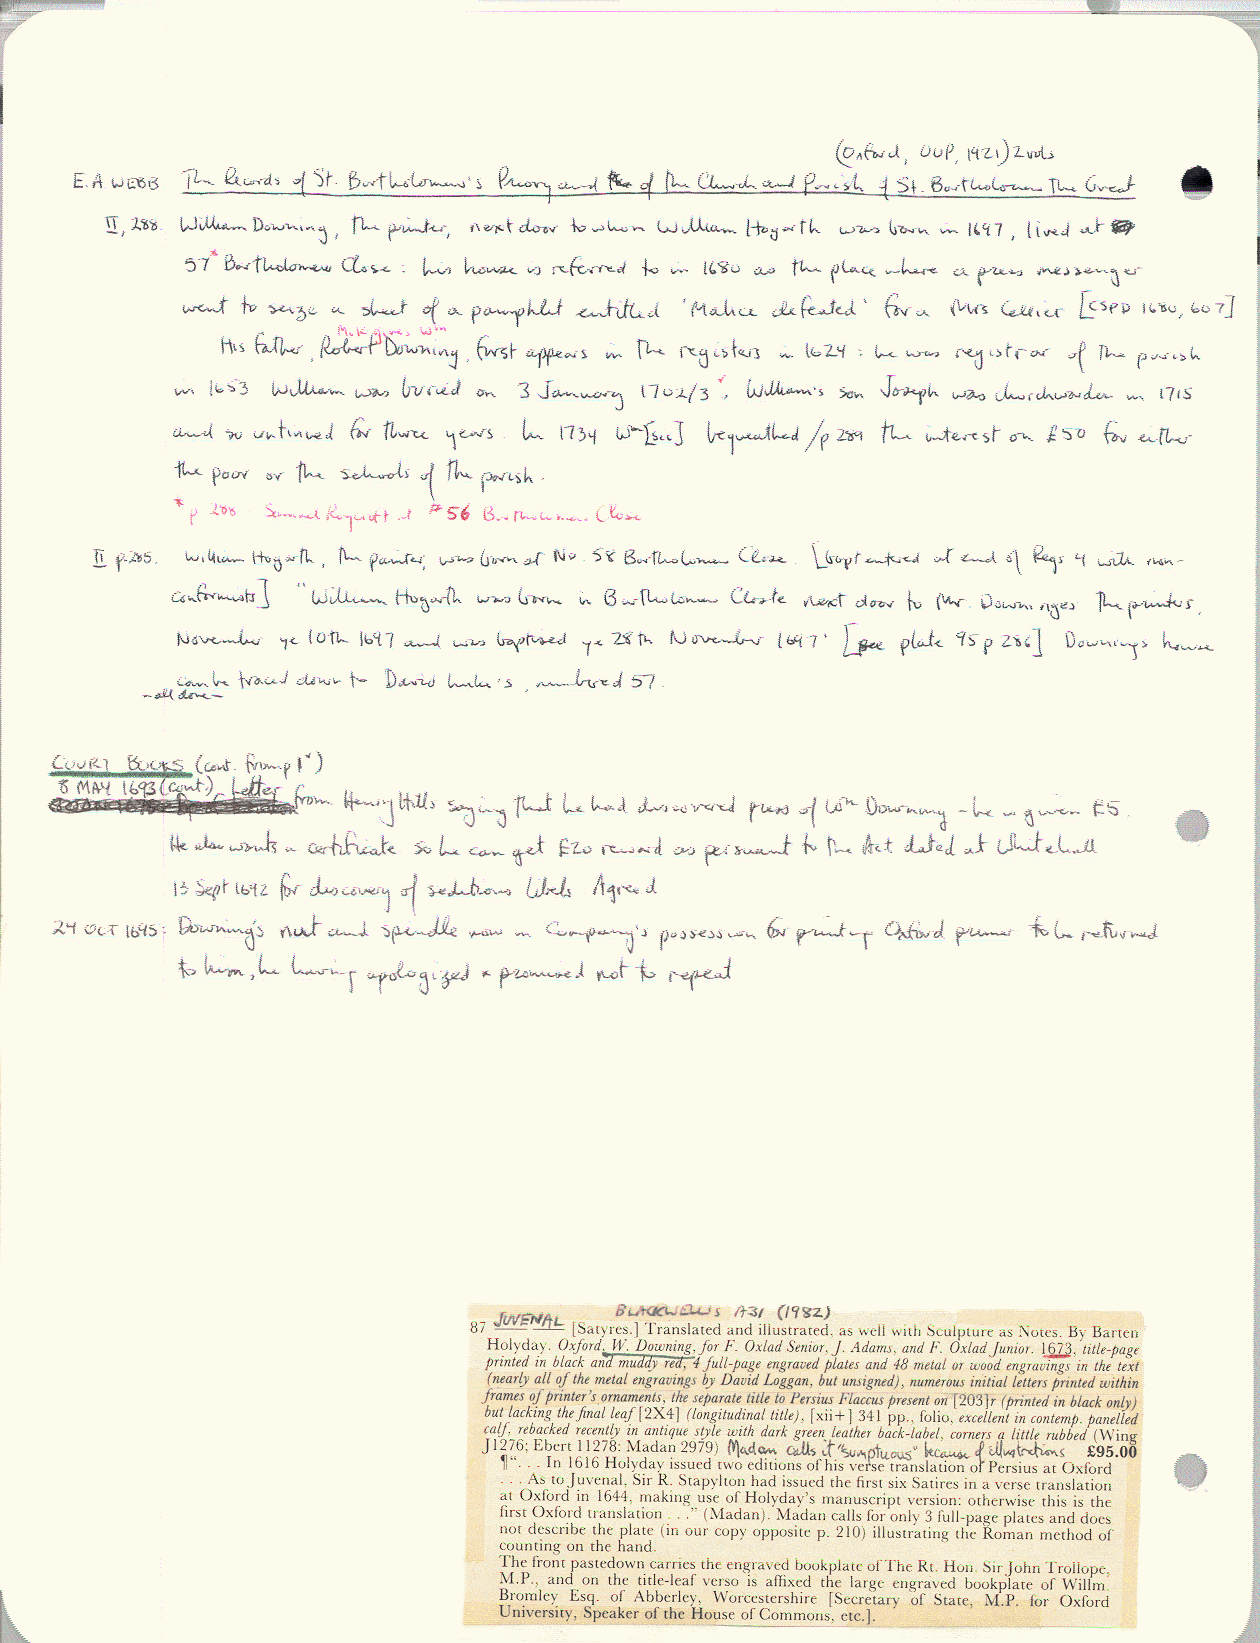 (Oxford, OUP, 1921) 2 vols
E.A WEBB The Records of St. Bartholomew's Priory and of the Church and Parish of St. Bartholomew The Great
II, 288. William Downing, the printer, next door to whom William Hogarth was born in 1697, lived at
57* Bartholomew Close : his house is referred to in 1680 as the place where a press messenger
went to seize a sheet of a pamphlet entitled 'Malice defeated' for a Mrs Cellier [CSPD 1680, 607]
McK gives Wm
His father, Robert Downing, first appears in the registers in 1624 : he was registrar of the parish
in 1653 William was buried on 3 January 1702/3 ; William's son Joseph was churchwarden in 1715
and so continued for three years. In 1734 Wm [sic] bequeathed /p 289 the interest on £50 for either
the poor or the schools of the parish.
* p 288 Samuel Roycroft at #56 Bartholomew Close
II p.285. William Hogarth, the painter, was born at No. 58 Bartholomew Close. [bapt entered at end of Regs 4 with non-
conformists] "William Hogarth was borne in Bartholomew Closte next door to Mr. Downinges the printers,
November ye 10th 1697 and was baptised ye 28th November 1697' [see plate 95 p 286] Downing's house
can be traced down to David 's, numbered 57.
- all done -
COURT BOOKS (cont. from p 1v)
8 MAY 1693 (cont.) Letter from Henry Hills saying that he had discovered press of Wm Downing - he is given £5.
He also wants a certificate so he can get £20 reward as persuant to the Act dated at Whitehall
13 Sept 1692 for discovery of seditious libels Agreed
24 OCT 1695: Downing's nut and spindle now in Company's possession for printing Oxford primer to be returned
to him, he having apologized & promised not to repeat
BLACKWELL'S A31 (1982)
87 JUVENAL [Satyres.] Translated and illustrated, as well with Sculpture as Notes. By Barten
Holyday. Oxford, W. Downing, for F. Oxlad Senior, J. Adams, and F. Oxlad Junior. 1673, title-page
printed in black and muddy red, 4 full-page engraved plates and 48 metal or wood engravings in the text
(nearly all of the metal engravings by David Loggan, but unsigned), numerous initial letters printed within
frames of printer's ornaments, the separate title to Persius Flaccus present on [203]r (printed in black only)
but lacking the final leaf [2X4] (longitudinal title), [xii+] 341 pp., folio, excellent in contemp. panelled
calf, rebacked recently in antique style with dark green leather back-label, corners a little rubbed (Wing
J1276; Ebert 11278; Madan 2979) Madan calls it "sumptuous" because of illustrations £95.00
¶". . . In 1616 Holyday issued two editions of his verse translation of Persius at Oxford
. . . As to Juvenal, Sir R. Stapylton had issued the first six Satires in a verse translation
at Oxford in 1644, making use of Holyday's manuscript version: otherwise this is the
first Oxford translation . . ." (Madan). Madan calls for only 3 full-page plates and does
not describe the plate (in our copy opposite p. 210) illustrating the Roman method of
counting on the hand.
The front pastedown carries the engraved bookplate of The Rt. Hon. Sir John Trollope,
M.P., and on the title-leaf verso is affixed the large engraved bookplate of Willm.
Bromley Esq. of Abberley, Worcestershire [Secretary of State, M.P. for Oxford
University, Speaker of the House of Commons, etc.].